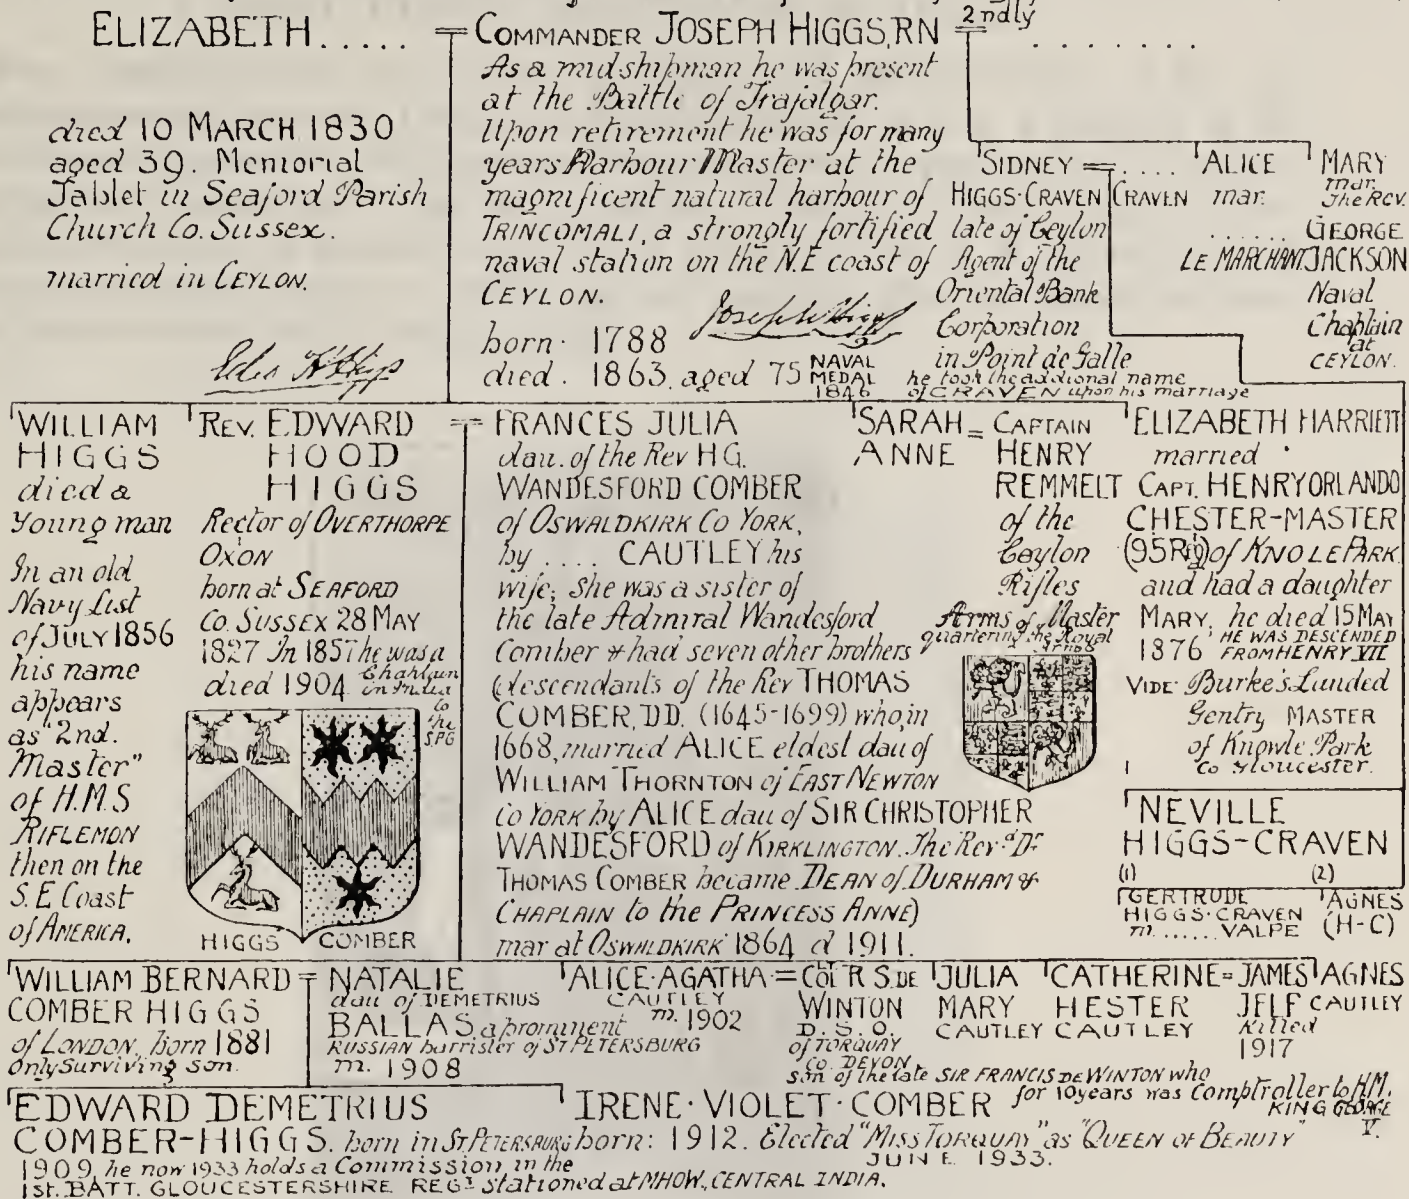 ELIZABETH ..... = COMMANDER JOSEPH HIGGS, RN = 2ndly
. . . . . . . .
died 10 MARCH 1830
aged 39. Memorial
Tablet in Seaford Parish
Church Co. Sussex.
married in CEYLON.
As a midshipman he was present
at the Battle of Trafalgar.
Upon retirement he was for many
years Harbour Master at the
magnificent natural harbour of
TRINCOMALI, a strongly fortified
naval station on the N.E coast of
CEYLON.
born. 1788
died. 1863. aged 75
NAVAL
MEDAL
1846
SIDNEY = ....
HIGGS-CRAVEN CRAVEN
late of Ceylon
Agent of the
Oriental Bank
Corporation
in Point de Galle
he took the addional name
of CRAVEN upon his marriage
ALICE
mar.
......
LE MARCHANT.
MARY
mar.
The Rev.
GEORGE
JACKSON
Naval
Chaplain
at
CEYLON.
WILLIAM
HIGGS
died a
young man
In an old
Navy List
of JULY 1856
his name
appears
as "2nd.
Master"
of H.M.S
RIFLEMON
then on the
S.E Coast
of AMERICA.
REV. EDWARD =
HOOD
HIGGS
Rector of OVERTHORPE
OXON
born at SEAFORD
Co. SUSSEX 28 MAY
1827 In 1857 he was a
Chaplain
in India
to
the
S.P.G
died 1904.
HIGGS COMBER
FRANCES JULIA
dau. of the Rev H.G.
WANDESFORD COMBER
of OSWALDKIRK Co YORK,
by .... CAUTLEY his
wife; She was a sister of
the late Admiral Wandesford
Comber & had seven other brothers
(descendants of the Rev THOMAS
COMBER, D.D. (1645-1699) who, in
1668, married ALICE eldest dau of
WILLIAM THORNTON of EAST NEWTON
Co YORK by ALICE dau of SIR CHRISTOPHER
WANDESFORD of KIRKLINGTON. The Revd Dr
THOMAS COMBER became DEAN of DURHAM &
CHAPLAIN to the PRINCESS ANNE)
mar at OSWALDKIRK 1864 d 1911.
SARAH =
ANNE
CAPTAIN
HENRY
REMMELT
of the
Ceylon
Rifles
Arms of Master
quartering the Royal
Arms
ELIZABETH HARRIETT
married
CAPT. HENRY ORLANDO
CHESTER-MASTER
(95 Reg) of KNOLE PARK
and had a daughter
MARY, he died 15 MAY
1876 HE WAS DESCENDED
FROM HENRY VII
VIDE Burke's Landed
Gentry MASTER
of Knowle Park
Co Gloucester.
NEVILLE
HIGGS-CRAVEN
(1) (2)
GERTRUDE
HIGGS-CRAVEN
m ...... VALPE
AGNES
(H-C)
WILLIAM BERNARD =
COMBER HIGGS
of LONDON, born 1881
only surviving son.
NATALIE
dau of DEMETRIUS
BALLAS a prominent
RUSSIAN barrister of ST PETERSBURG
m. 1908
ALICE-AGATHA =
CAUTLEY
m. 1902
COLT R S. DE
WINTON
D.S.O.
of TORQUAY
Co. DEVON
son of the late SIR FRANCIS DE WINTON who
for 10 years was Comptroller to H.M.
KING GEORGE
V.
JULIA
MARY
CAUTLEY
CATHERINE =
HESTER
CAUTLEY
JAMES
JELF
Killed
1917
AGNES
CAUTLEY
EDWARD DEMETRIUS
COMBER-HIGGS. born in ST. PETERSBURG
1909, he now 1933 holds a Commission in the
1st. BATT. GLOUCESTERSHIRE REGT stationed at MHOW, CENTRAL INDIA.
IRENE·VIOLET·COMBER
born: 1912. Elected "MISS TORQUAY" as "QUEEN OF BEAUTY"
JUNE 1933.